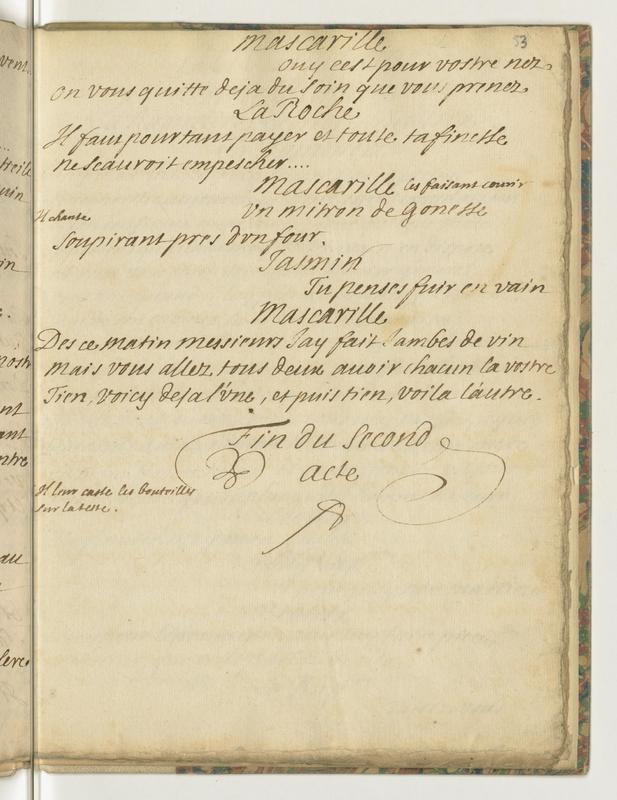 53
Mascarille
ouy c'est pour vostre nez
on vous quitte deja du soin que vous prenez
La Roche
Il faut pourtant payer et toute ta finesse
ne scauroit empescher....
Mascarille les faisant courir
Il chante
un mitron de Gonesse
Soupirant pres d'vn four.
Jasmin
Tu penses fuir en vain
Mascarille
Des ce matin messieurs J'ay fait Jambes de vin
Mais vous allez tous deux auoir chacun la vostre
Tien, voicy deja l'vne, et puis tien, voila l'autre.
Fin du Second
acte
Il leur casse les bouteilles
sur la teste.